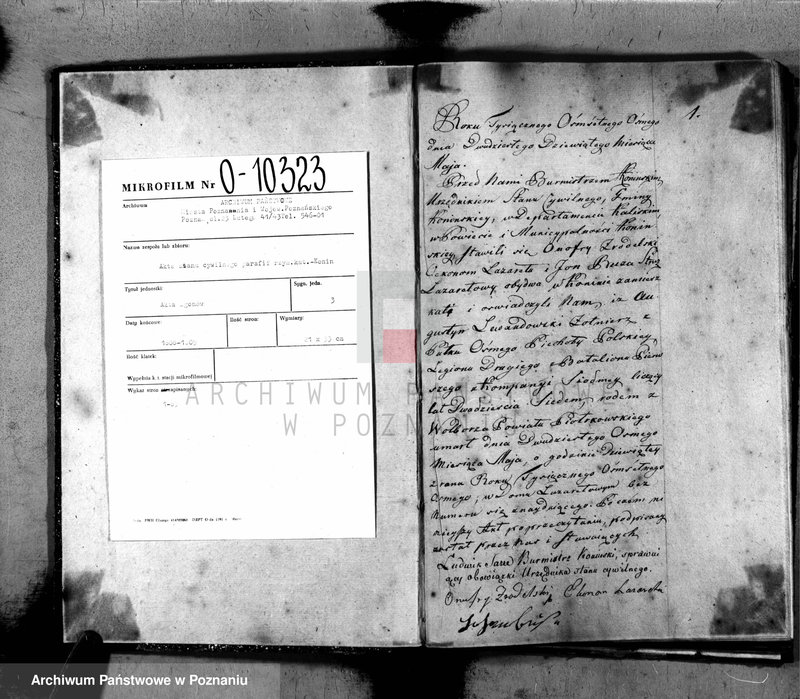 MIKROFILM Nr O-10323
Archiwum
ARCHIWUM PAŃSTWOWE
Miasta Poznania i Wojew. Poznańskiego
41/43Tel. 546-01
Nazwa zespołu lub zbioru:
Akta stanu cywilnego parafii rzym.kat.-Konin
Tytuł jednostki:
Akta zgonów
Sygn. jedn.
3
Daty końcowe:
Ilość stron:
Wymiary:
21 x 33 cm
Ilość klatek:
Wypełnia k. t. stacji mikrofilmowej
Wykaz stron
ARCHIWUM PAŃSTWOWE
W POZNANIU
1.
Roku Tysiącznego Ośmsetnego Osmego
dnia Dwudziestego Dziewiątego Miesiąca
Maja.
Przed Nami Burmistrzem Koninskim
Urzędnikiem Stanu Cywilnego, Gminy
Koninskiey, w Departamencie Kaliskim
w Powiecie i Municypalności Konin
skiey, Stawili się Onufry Zrodelski
Ekonom Lazaretu i Jan
Lazaretowy obydwa w Koninie zamiesz
kali i oswiadczyli Nam, iz Au
gustyn Lewandowski Zołnierz z
Pułku Osmego Piechoty Polskiey
Legionu Drugiego Bataliona Pierw
szego z Kompanyi Siodmey liczący
lat Dwadziescia Siedem, rodem z
Wolborza Powiatu Piotrkowskiego
umarł dnia Dwudziestego Osmego
Miesiąca Maja, o godzinie Dziewiątey
z rana Roku Tysiącznego Osmsetnego
Osmego, w Domu Lazaretowym bez
Numeru się znayduiącego. Po czem ni
nieyszy Akt po przeczytaniu, podpisany
został przez Nas i Stawaiących.
Ludwik Burmistrz Koninski, sprawui
ący obowiązki Urzędnika stanu cywilnego.
Onufry Zrodelski Ekonom Lazaretu
Archiwum Państwowe w Poznaniu